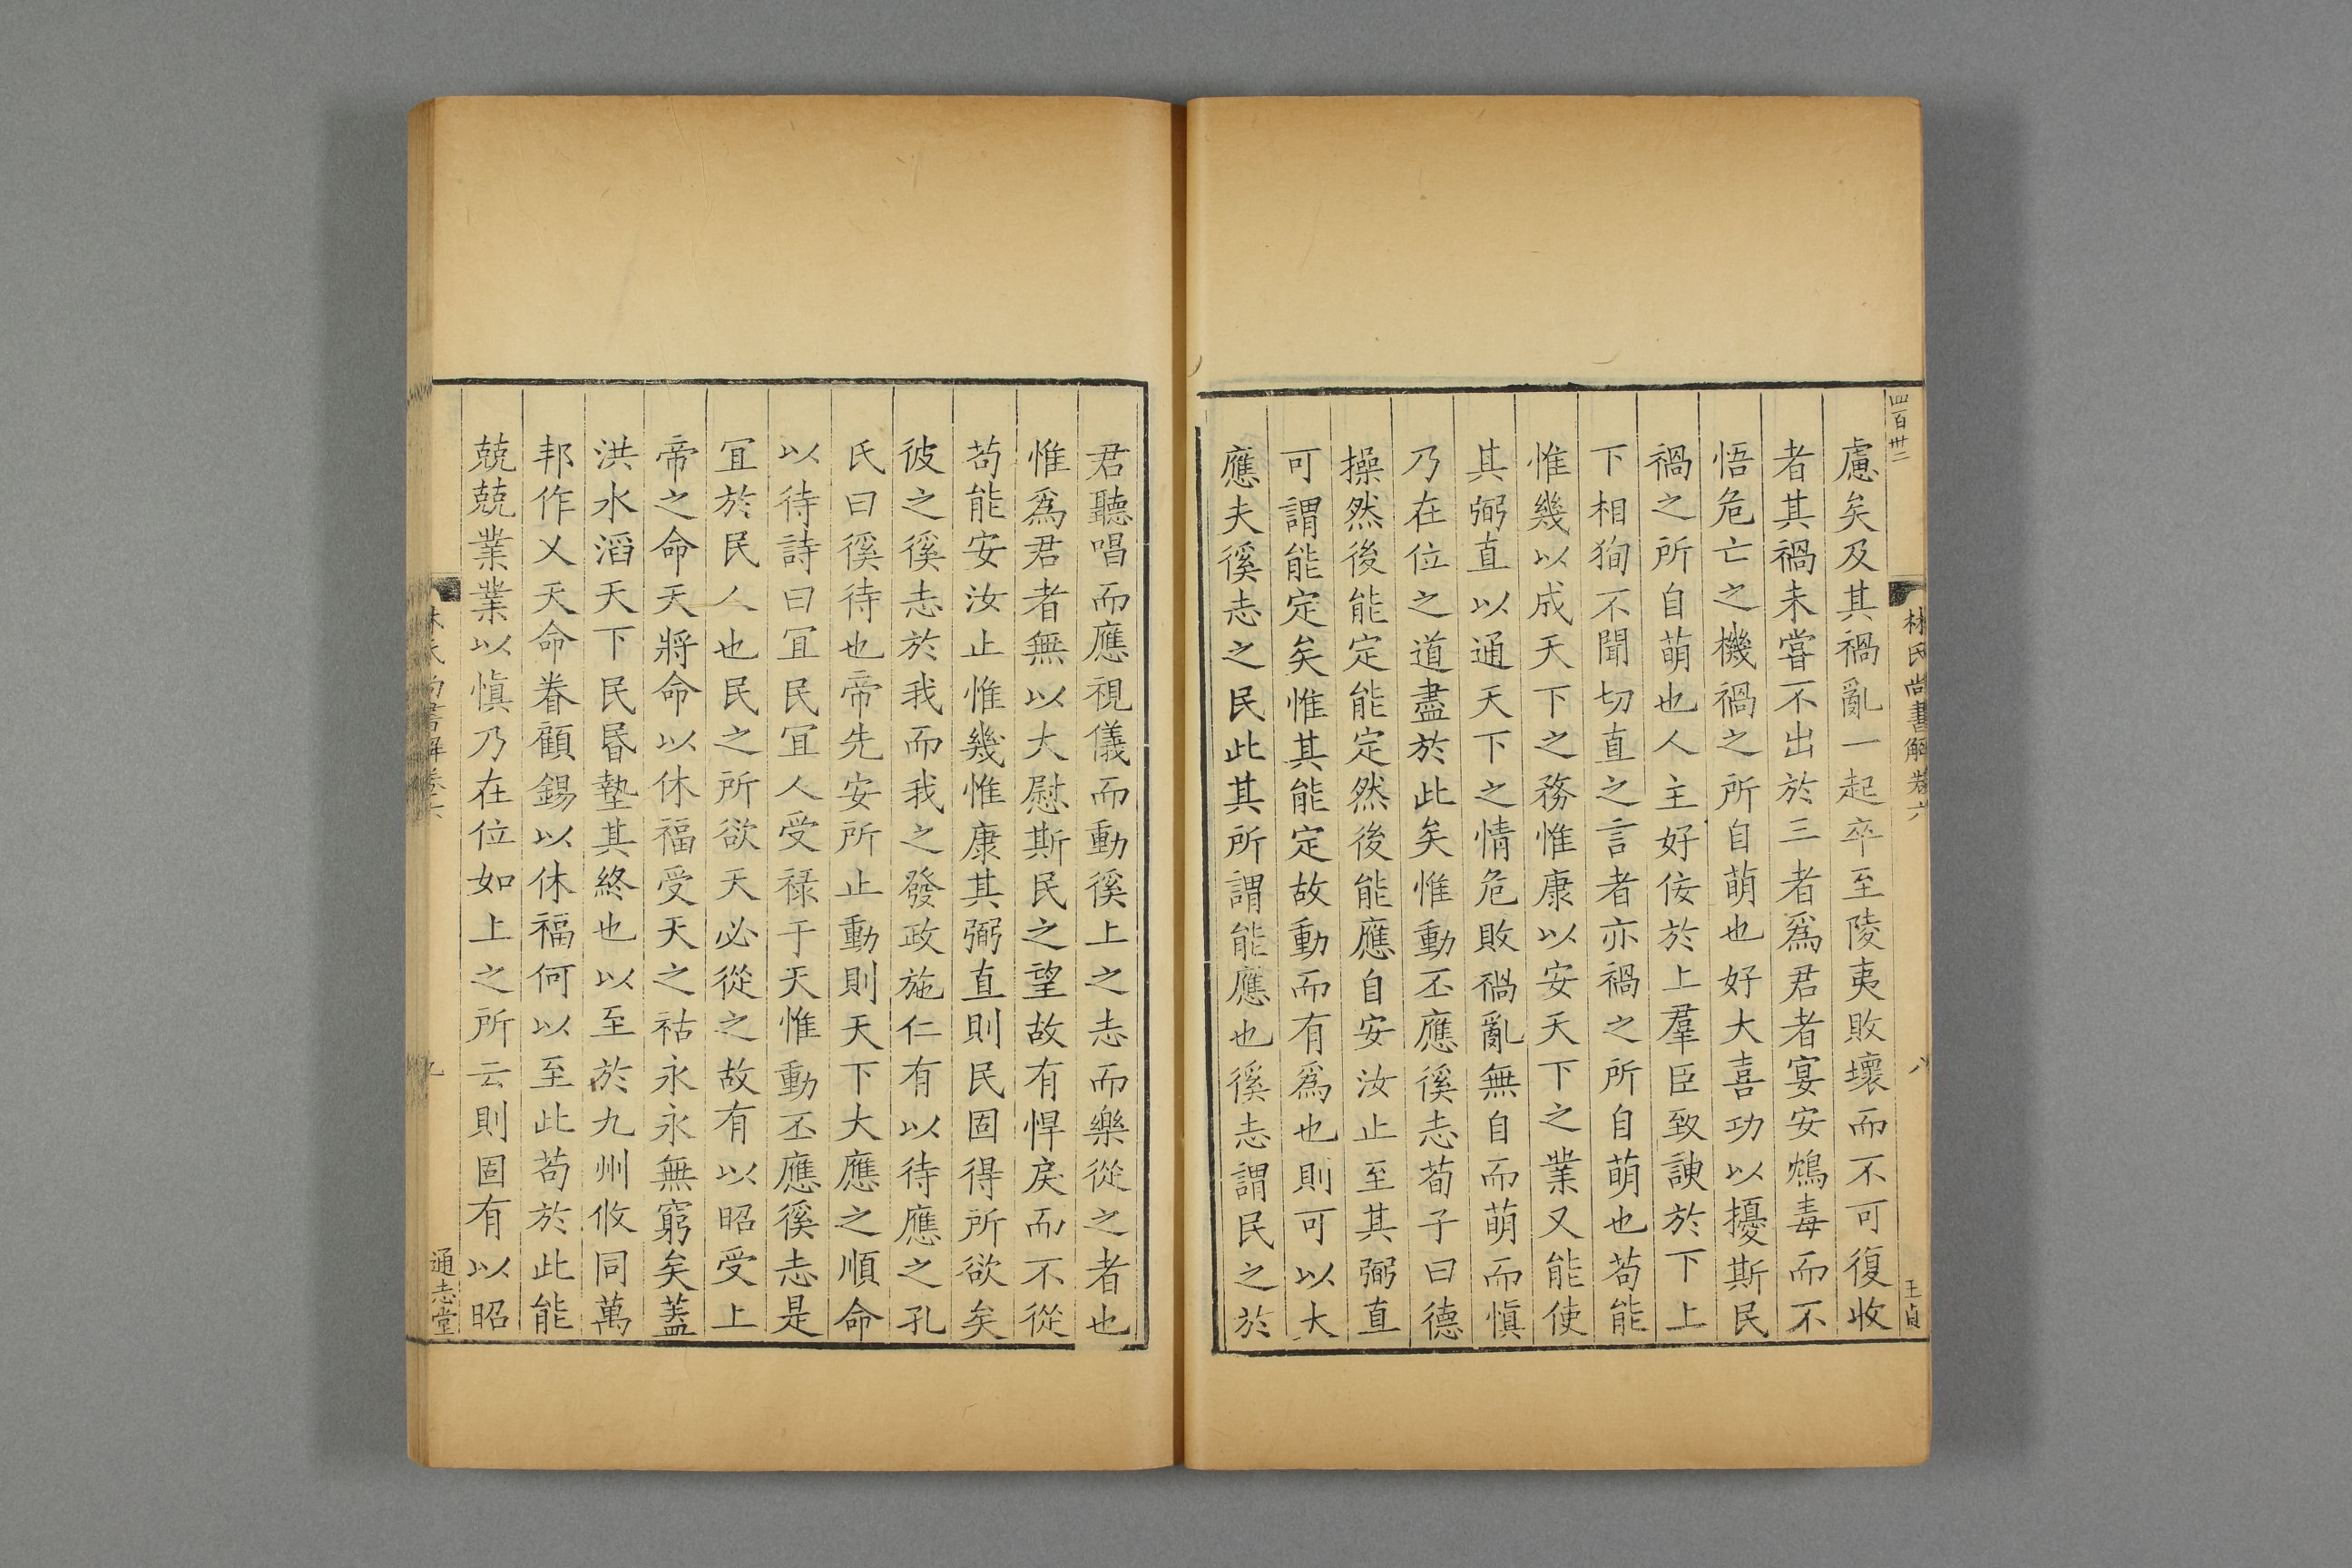 四百卅二
林氏尚書解卷六
八
王貞
慮矣及其禍亂一起卒至陵夷敗壞而不可復收
者其禍未嘗不出於三者爲君者宴安鴆毒而不
悟危亡之機禍之所自萌也好大喜功以擾斯民
禍之所自萌也人主好佞於上羣臣致諛於下上
下相狥不聞切直之言者亦禍之所自萌也苟能
惟幾以成天下之務惟康以安天下之業又能使
其弼直以通天下之情危敗禍亂無自而萌而愼
乃在位之道盡於此矣惟動丕應徯志荀子曰德
操然後能定能定然後能應自安汝止至其弼直
可謂能定矣惟其能定故動而有爲也則可以大
應夫徯志之民此其所謂能應也徯志謂民之於
君聽唱而應視儀而動徯上之志而樂從之者也
惟爲君者無以大慰斯民之望故有悍戾而不從
苟能安汝止惟幾惟康其弼直則民固得所欲矣
彼之徯志於我而我之發政施仁有以待應之孔
氏曰徯待也帝先安所止動則天下大應之順命
以待詩曰宜民宜人受祿于天惟動丕應徯志是
宜於民人也民之所欲天必從之故有以昭受上
帝之命天將命以休福受天之祜永永無窮矣蓋
洪水滔天下民昬墊其終也以至於九州攸同萬
邦作乂天命眷顧錫以休福何以至此苟於此能
兢兢業業以愼乃在位如上之所云則固有以昭
通志堂